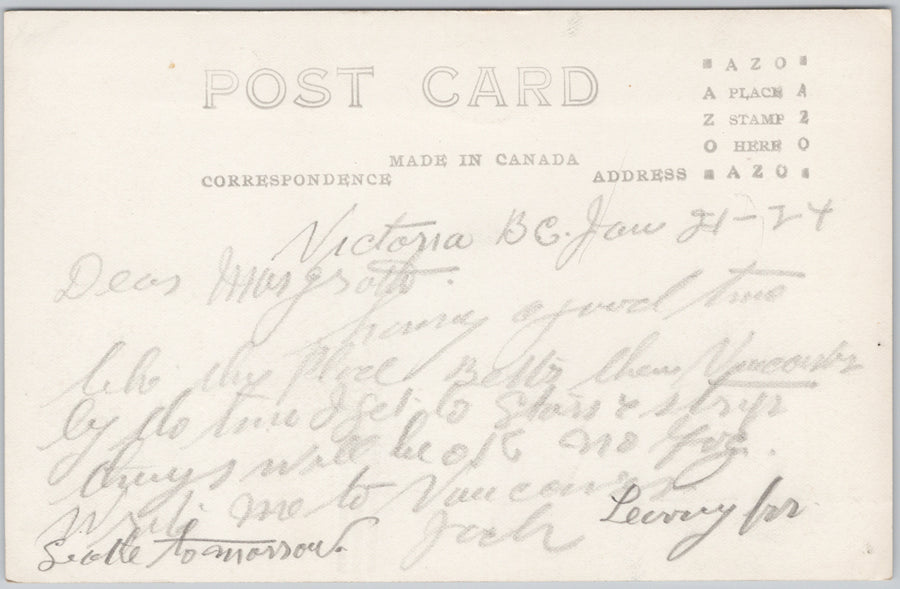 POST CARD
AZO
A PLACE A
Z STAMP Z
O HERE O
AZO
MADE IN CANADA
CORRESPONDENCE
ADDRESS
Victoria BC. Jan 21-24
Dear
having a good time
like this place Better then Vancouver
by the time I get to Stars & strips
things will be ok no fog.
Write me to Vancouver
Jack
Leaving for
Seattle tomorrow.